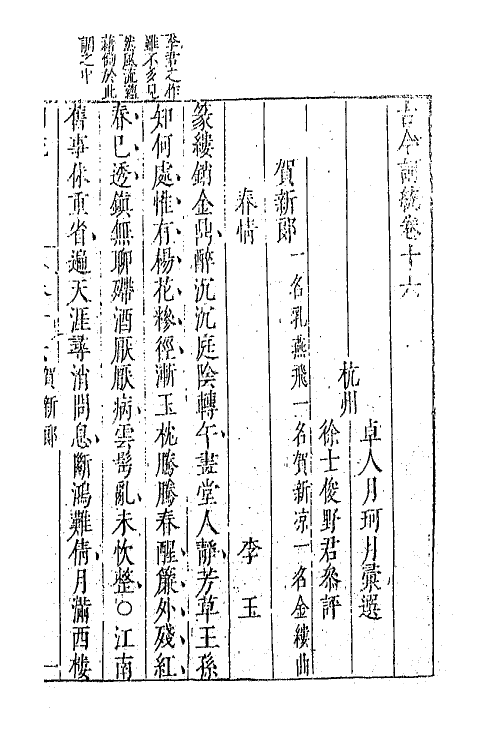 李君之作
雖不多見
然風流蘊
藉倘於此
調之中
古今詞統卷十六
杭州 卓人月珂月彙選
徐士俊野君參評
賀新郎 一名乳燕飛一名賀新涼一名金縷曲
春情 李玉
篆縷銷金鼎醉沉沉庭陰轉午畫堂人靜芳草王孫
知何處惟有楊花糝徑漸玉枕騰騰春醒簾外殘紅
春已透鎮無聊殢酒厭厭病雲髩亂未忺整○江南
舊事休重省遍天涯尋消問息斷鴻難倩月滿西樓
賀新郎 一